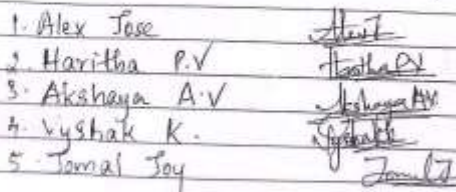 1. Alex Jose Alex J
2. Haritha P.V Haritha P.V
3. Akshaya A.V Akshaya A.V
4. Vyshak K. Vyshak K
5 Jomal Joy Jomal J